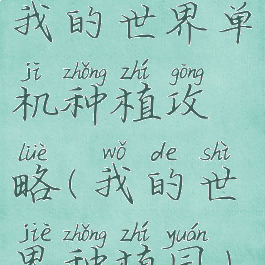 我的世界单
jī zhǒng zhí gōng
机种植攻
lüè wǒ de shì
略(我的世
jiè zhǒng zhí yuán
界种植园)